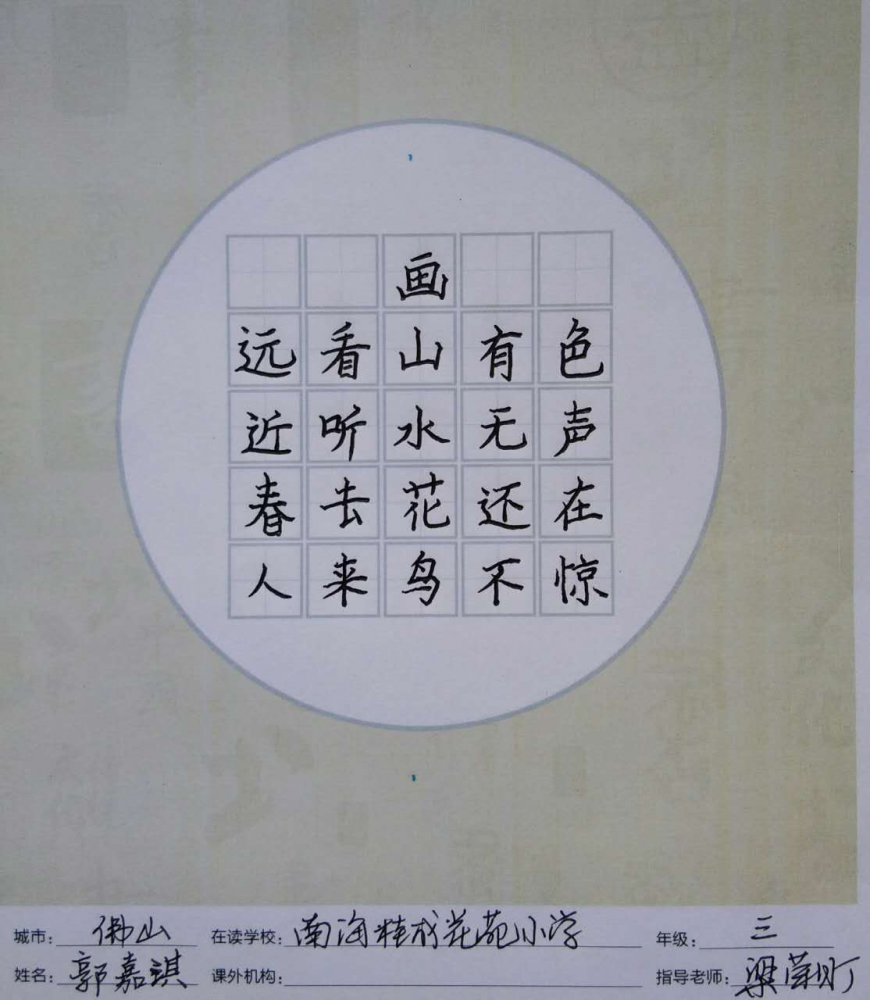 画
远看山有色
近听水无声
春去花还在
人来鸟不惊
城市: 佛山 在读学校: 南海桂城花苑小学 年级: 三
姓名: 郭嘉琪 课外机构: 指导老师: 梁